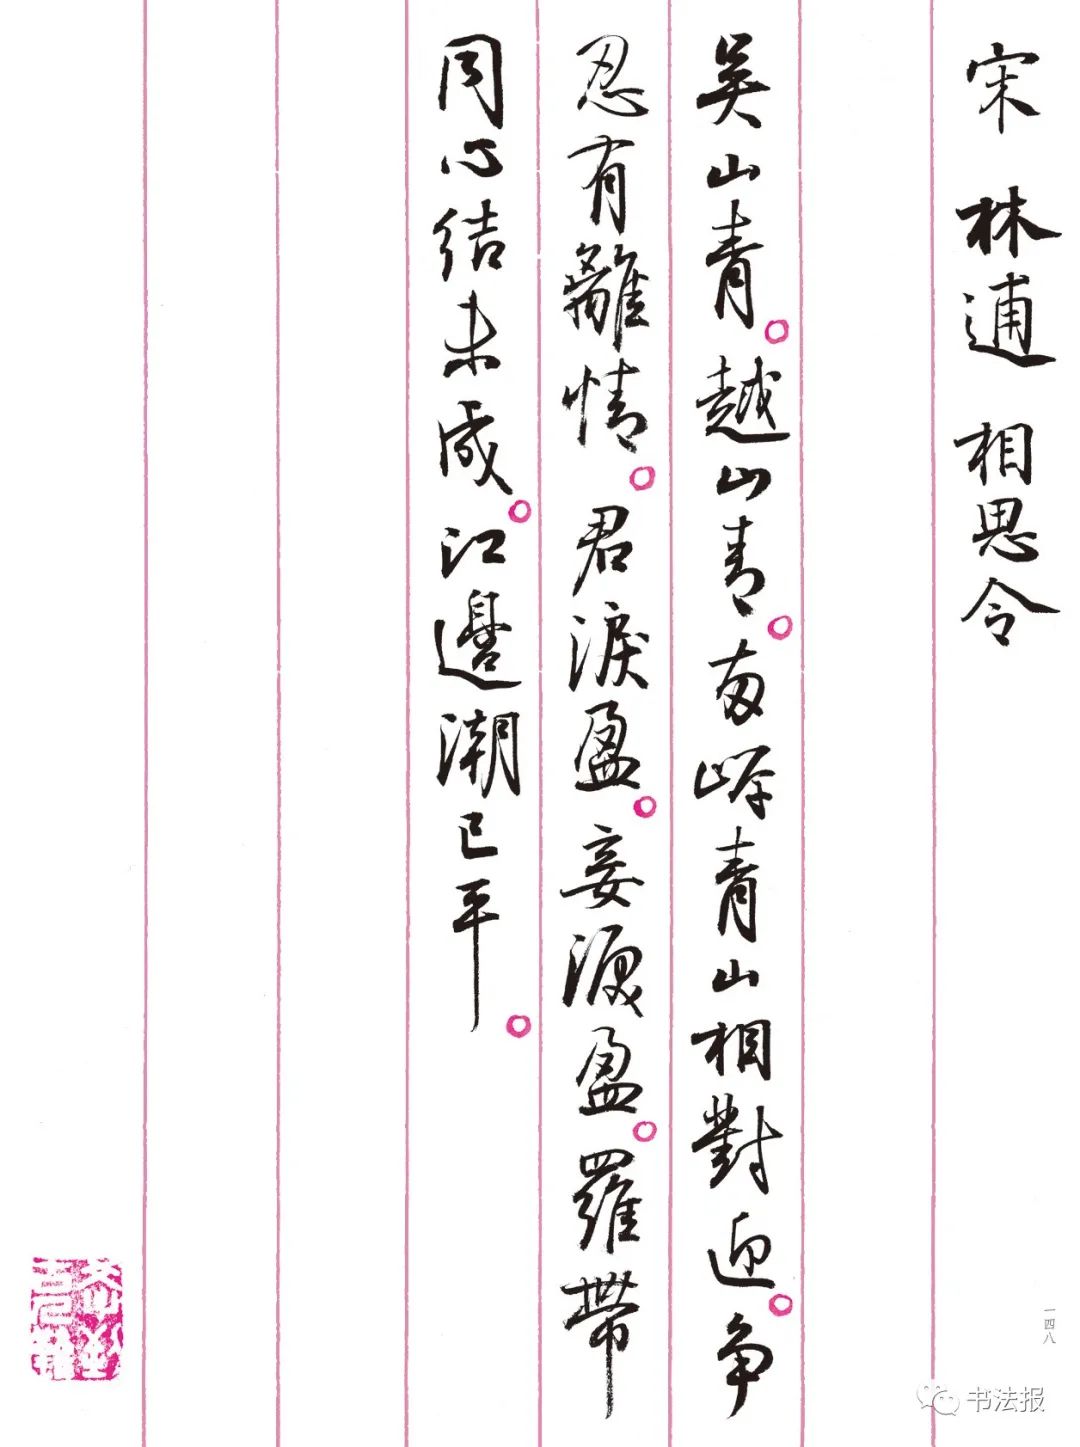 宋 林逋 相思令
吳山青。越山青。兩岸青山相對迎。爭
忍有離情。君淚盈。妾淚盈。羅帶
同心結未成。江邊潮已平。
一四八
书法报